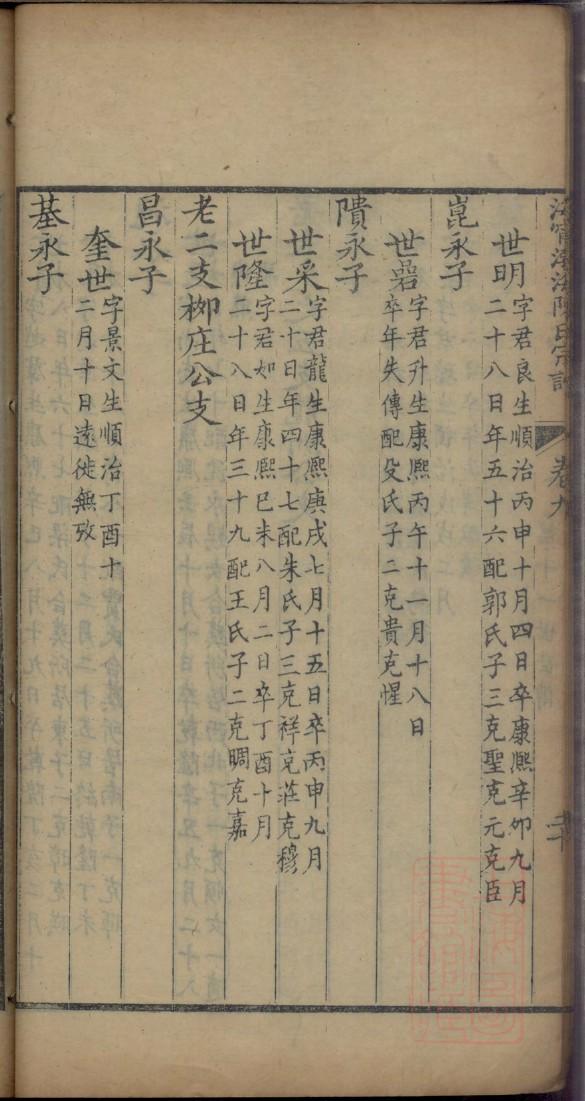 海寧渤海陳氏宗譜
卷九
世明
字君良生順治丙申十月四日卒康熙辛卯九月
二十八日年五十六配郭氏子三克聖克元克臣
崑永子
世磊
字君升生康熙丙午十一月十八日
卒年失傳配殳氏子二克貴克惺
隤永子
世采
字君龍生康熙庚戌七月十五日卒丙申九月
二十日年四十七配朱氏子三克祥克莊克穆
世隆
字君如生康熙己未八月二日卒丁酉十月
二十八日年三十九配王氏子二克明克嘉
老二支柳庄公支
昌永子
奎世
字景文生順治丁酉十
二月十日遠徙無攷
基永子